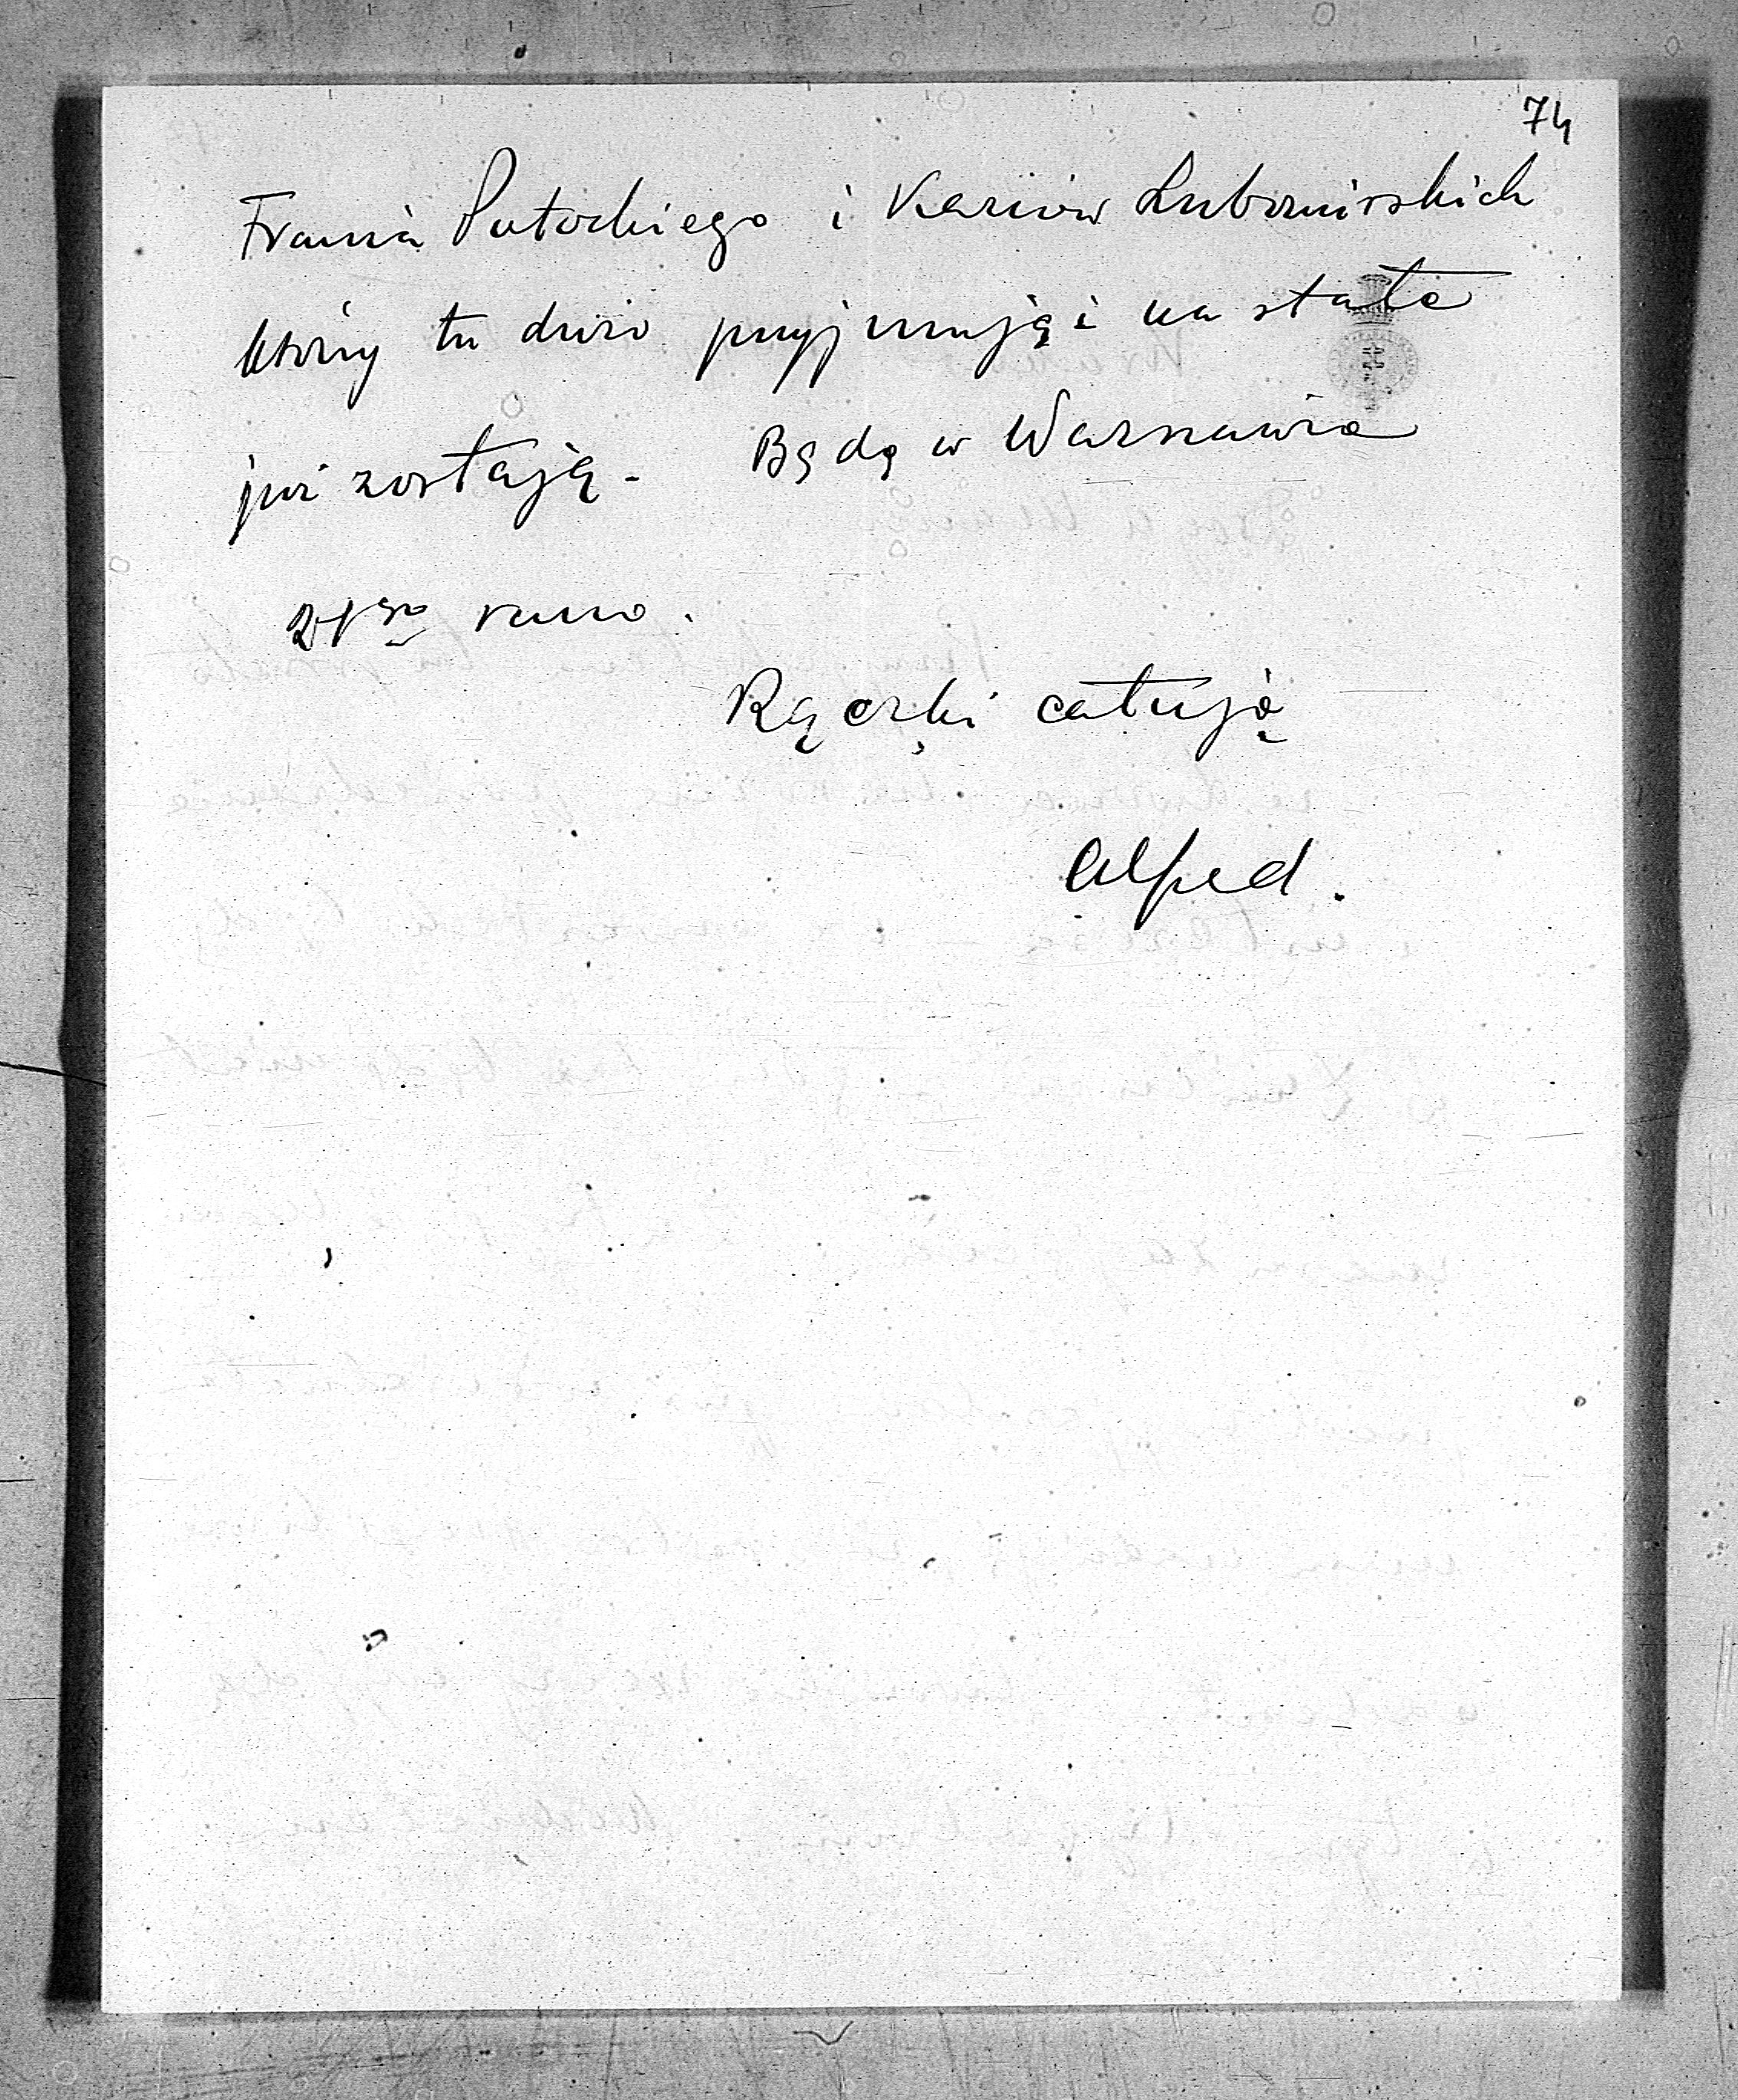 74
Frania Potockiego i Kaziów Lubomirskich
którzy tu dużo przyjmują i na stałe
już zostają - Będę w Warszawie
21go rano.
Rączki całuję
Alfred.